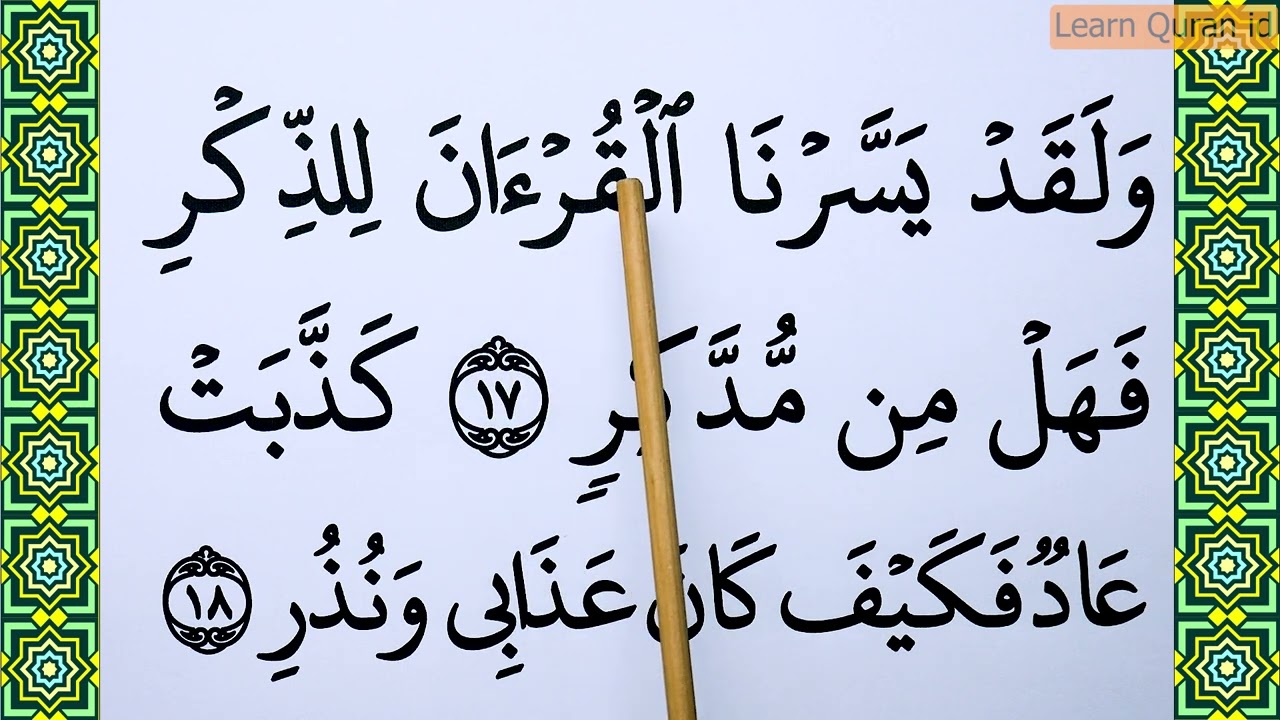 Learn Quran id
وَلَقَدۡ يَسَّرۡنَا ٱلۡقُرۡءَانَ لِلذِّكۡرِ
فَهَلۡ مِن مُّدَّكِرٖ ١٧ كَذَّبَتۡ
عَادٞ فَكَيۡفَ كَانَ عَذَابِي وَنُذُرِ ١٨